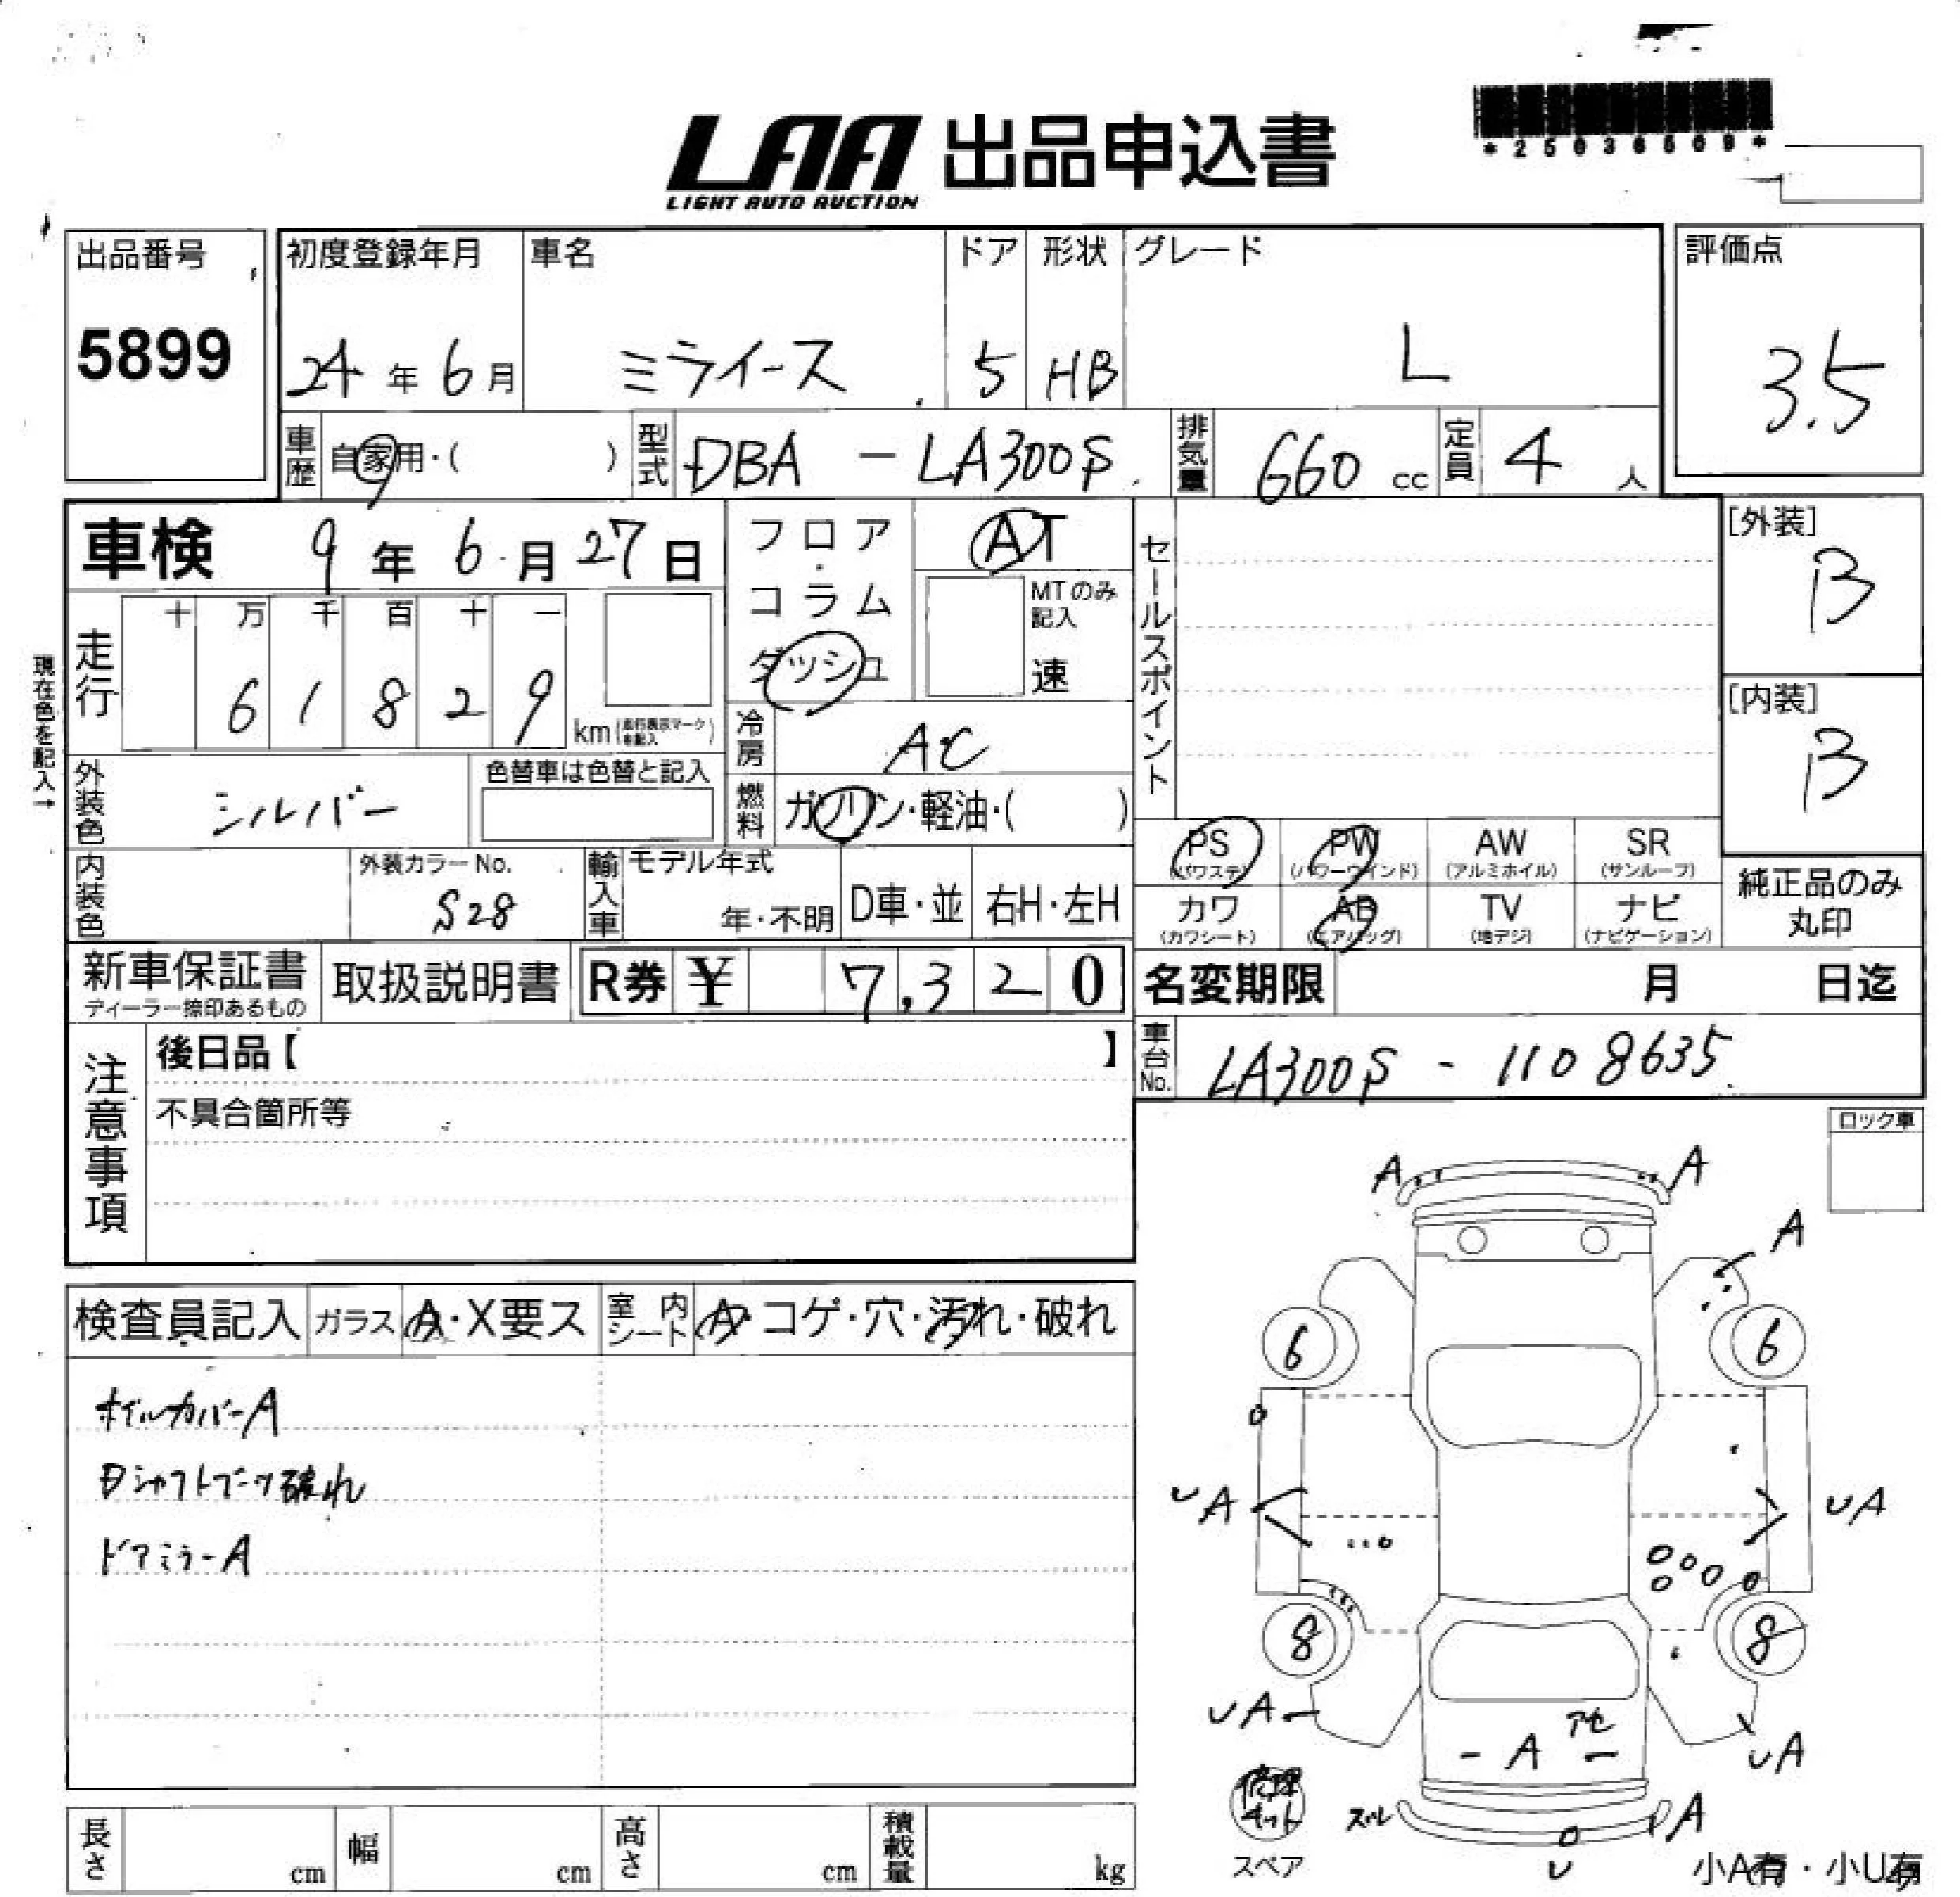 LAA 出品申込書
LIGHT AUTO AUCTION
出品番号
5899
初度登録年月
24年6月
車名
ミライース
ドア
5
形状
HB
グレード
L
評価点
3.5
車歴
自家用・( )
型式
DBA - LA300S
排気量
660 cc
定員
4人
車検 9年6月27日
フロア・コラム
ダッシュ
AT
MTのみ記入
速
セールスポイント
[外装]
B
[内装]
B
現在色を記入→
走行
十 万 千 百 十 一
6 1 8 2 9
km
冷房
AC
外装色
シルバー
色替車は色替と記入
燃料
ガソリン・軽油・( )
内装色
外装カラーNo.
S28
輸入車
モデル年式
年・不明
D車・並
右H・左H
PS
(パワステ)
PW
(パワーウインド)
AW
(アルミホイル)
SR
(サンルーフ)
カワ
(カワシート)
AB
(エアバッグ)
TV
(地デジ)
ナビ
(ナビゲーション)
純正品のみ
丸印
新車保証書
ディーラー捺印あるもの
取扱説明書
R券 ¥ 7,320
名変期限 月 日迄
車台No.
LA300S - 1108635
注意事項
後日品【 】
不具合箇所等
ロック車
検査員記入
ガラス
A・X要ス
室内シート
A・コゲ・穴・汚れ・破れ
ホイルカバーA
Dシャフトブーツ破れ
ドアミラーA
A A
A
6 6
UA UA
8 8
UA UA
A アセ
修理キット
スペア
ズレ A
U
小A有・小U有
長さ cm
幅 cm
高さ cm
積載量 kg